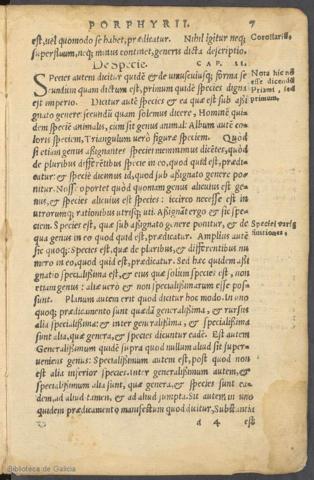 PORPHYRII. 7
est, vel quomodo se habet, prædicatur. Nihil igitur neq; Corollariũ.
superfluum, neq; minus continet, generis dicta descriptio.
De Specie. CAP. II.
SPecies autem dicitur quidẽ & de uniuscuiusq; forma se Nota hic nõ
cundum quam dictum est, primum quidẽ species digna esse dicendũ
est imperio. Dicitur autẽ species & ea quæ est sub assi Priami, sed
gnato genere secundũ quam solemus dicere, Hominẽ qui primum.
dem speciẽ animalis, cum sit genus animal: Album autẽ co
loris speciem, Triangulum verò figuræ speciem. Quod
si etiam genus assignantes speciei meminimus dicẽtes, quod
de pluribus differẽtibus specie in eo, quod quid est, prædi
catur: & speciẽ dicimus id, quod sub assignato genere po-
nitur. Nosse oportet quòd quoniam genus alicuius est ge-
nus, & species alicuius est species: iccirco necesse est in
utrorumq; rationibus utrisq; uti. Assignãt ergo & sic spe-
ciem. Species est, quæ sub assignato genere ponitur, & de Speciei variæ
qua genus in eo quod quid est, prædicatur. Amplius autẽ finitiones.
sic quoq; Species est, quæ de pluribus, & differentibus nu
mero in eo, quod quid est, prædicatur. Sed hæc quidem assi
gnatio specialissima est, & eius quæ solùm species est, non
etiam genus: aliæ verò & non specialissimarum esse pos-
sunt. Planum autem erit quod dicitur hoc modo. In uno
quoq; prædicamento sunt quædã generalissima, & rursus
alia specialissima: & inter generalissima, & specialissima
sunt alia, quæ & genera, & species dicuntur eadẽ. Est autem
Generalissimum quidẽ supra quod nullum aliud sit super-
veniens genus: Specialissimum autem est, post quod non
est alia inferior species. Inter generalissimum autem, &
specialissimum alia sunt, quæ genera, & species sunt ea-
dem, ad aliud tamen, & ad aliud sumpta. Sit autem in uno
quidem prædicamento manifestum quod dicitur, Substantia
d 4 est
Biblioteca de Galicia